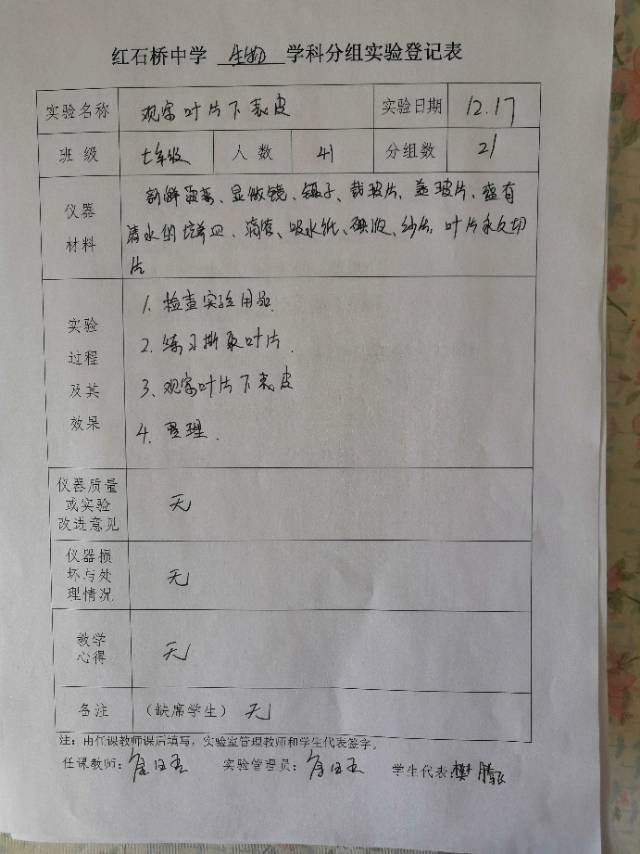 红石桥中学 生物 学科分组实验登记表
实验名称 观察叶片下表皮 实验日期 12.17
班级 七年级 人数 41 分组数 21
仪器材料
新鲜菠菜、显微镜、镊子、载玻片、盖玻片、盛有
清水的培养皿、滴管、吸水纸、碘液、纱片、叶片永久切
片
实验过程及其效果
1、检查实验用品
2、练习撕取叶片.
3、观察叶片下表皮
4、整理.
仪器质量或实验改进意见 无
仪器损坏与处理情况 无
教学心得 无
备注 (缺席学生) 无
注:由任课教师课后填写,实验室管理教师和学生代表签字。
任课教师: 实验管理员: 学生代表:樊腾飞